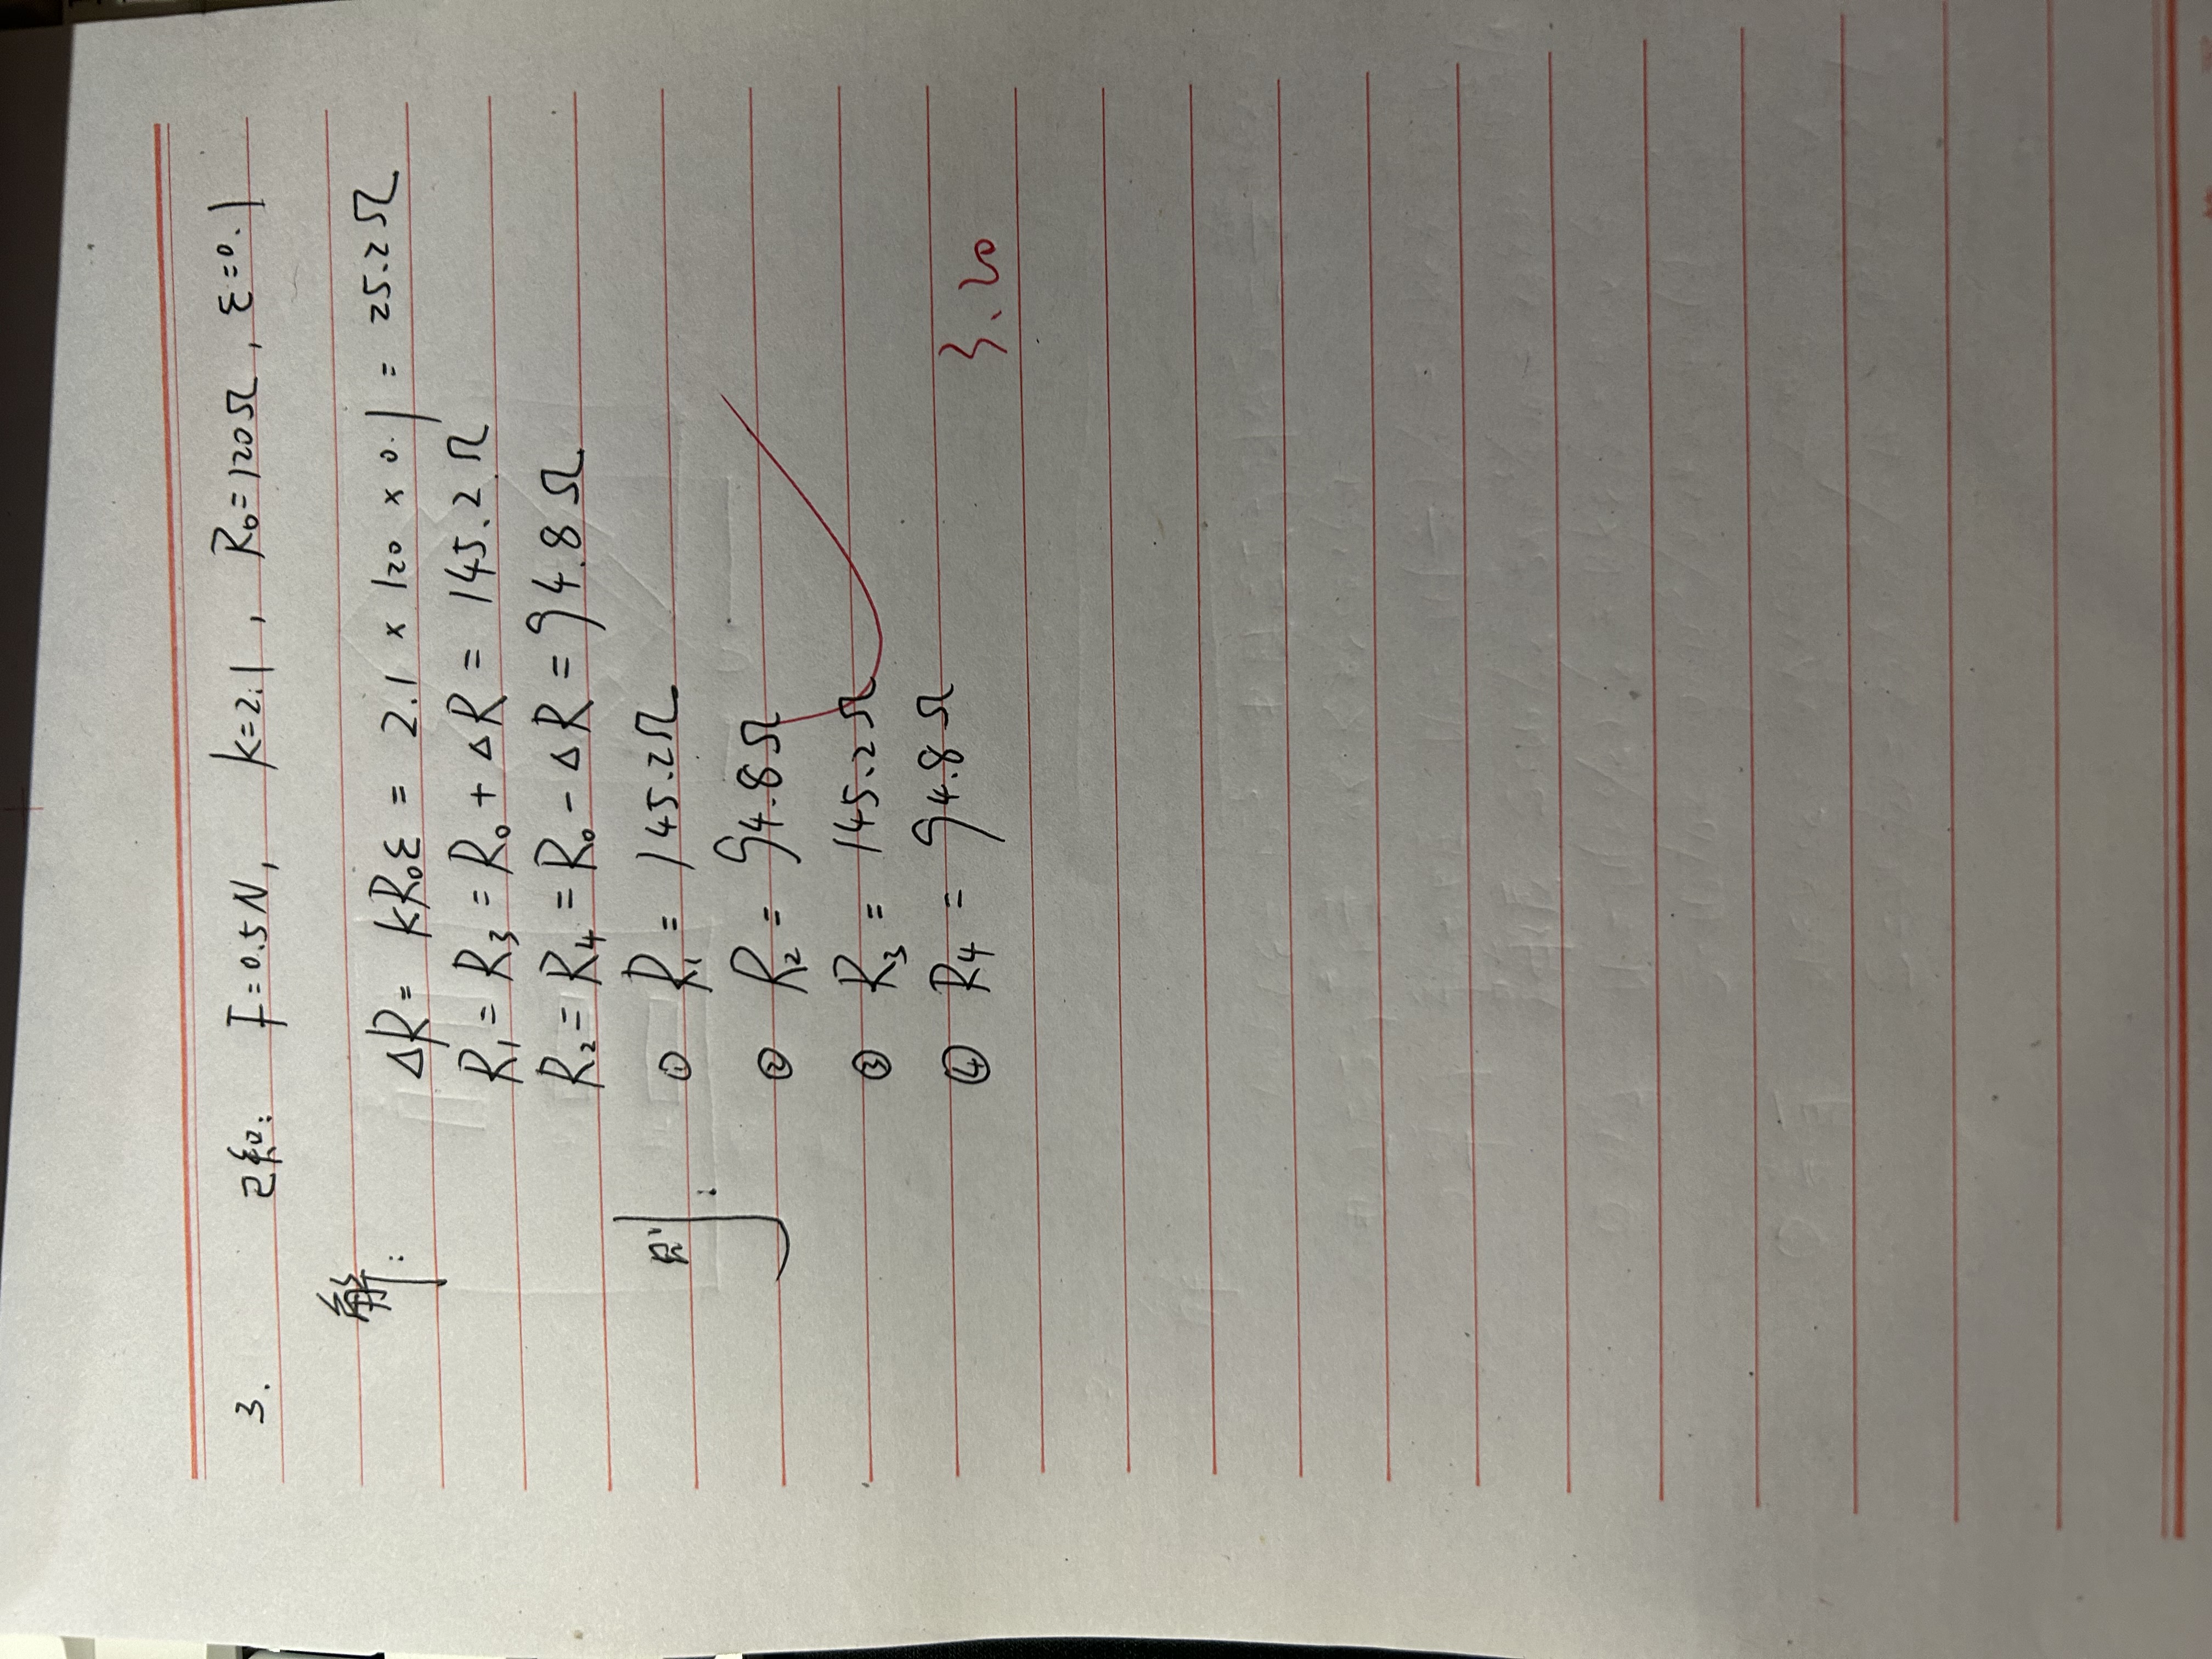 3. 已知: F=0.5N, k=2.1, R₀=120Ω, ε=0.1
解: ΔR= kR₀ε = 2.1 × 120 × 0.1 = 25.2Ω
R₁= R₃ = R₀ + ΔR = 145.2Ω
R₂= R₄ = R₀ - ΔR = 94.8Ω
则: ① R₁ = 145.2Ω
② R₂ = 94.8Ω
③ R₃ = 145.2Ω
④ R₄ = 94.8Ω
3.20